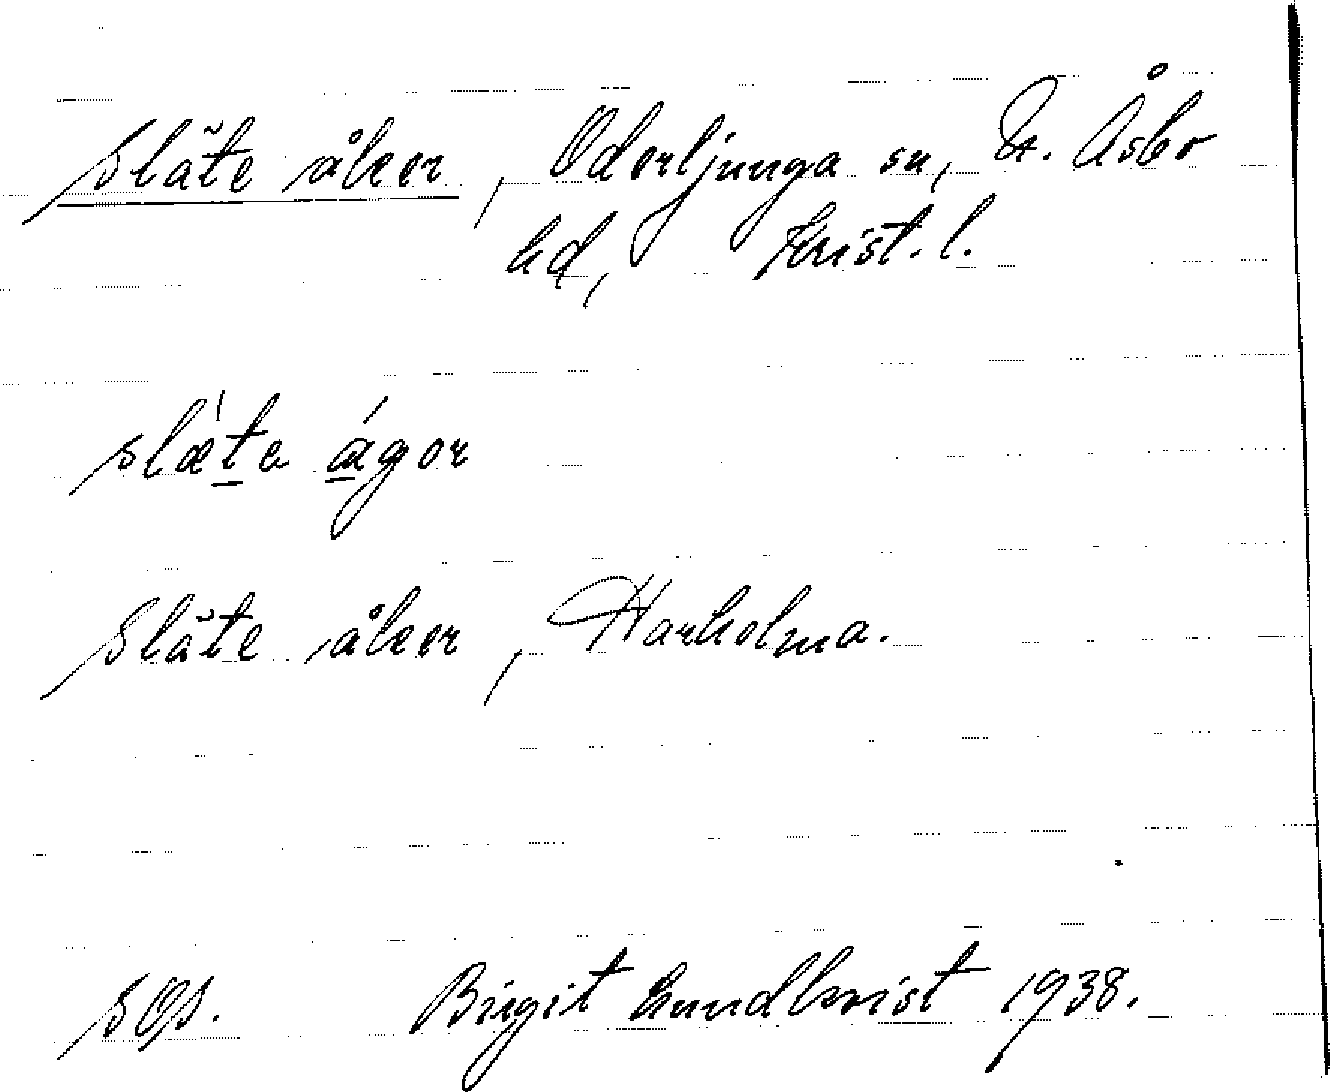 Släte åker, Oderljunga sn, N. Åsbo
hd, Krist. l.
slæ̍ta ágor
Släte åker, Harholma.
Birgit Lundkvist 1938.